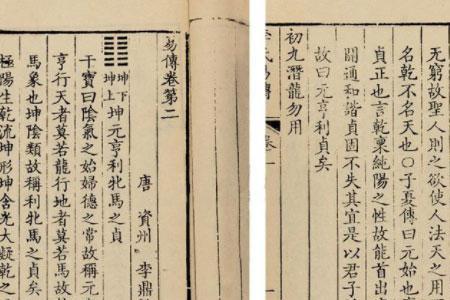 无窮故聖人則之欲使人法天之用
名乾不名天也〇子夏傳曰元始也
貞正也言乾稟純陽之性故能首出
開通和諧貞固不失其宜是以君子
故曰元亨利貞矣
初九潛龍勿用
氏易傳
易傳卷第二
唐 資州 李鼎
䷁坤下坤上坤元亨利牝馬之貞
干寶曰陰氣之始婦德之常故稱元
亨行天者莫若龍行地者莫若馬故
馬象也坤陰類故稱利牝馬之貞矣
極陽生乾流坤形坤含光大凝乾之